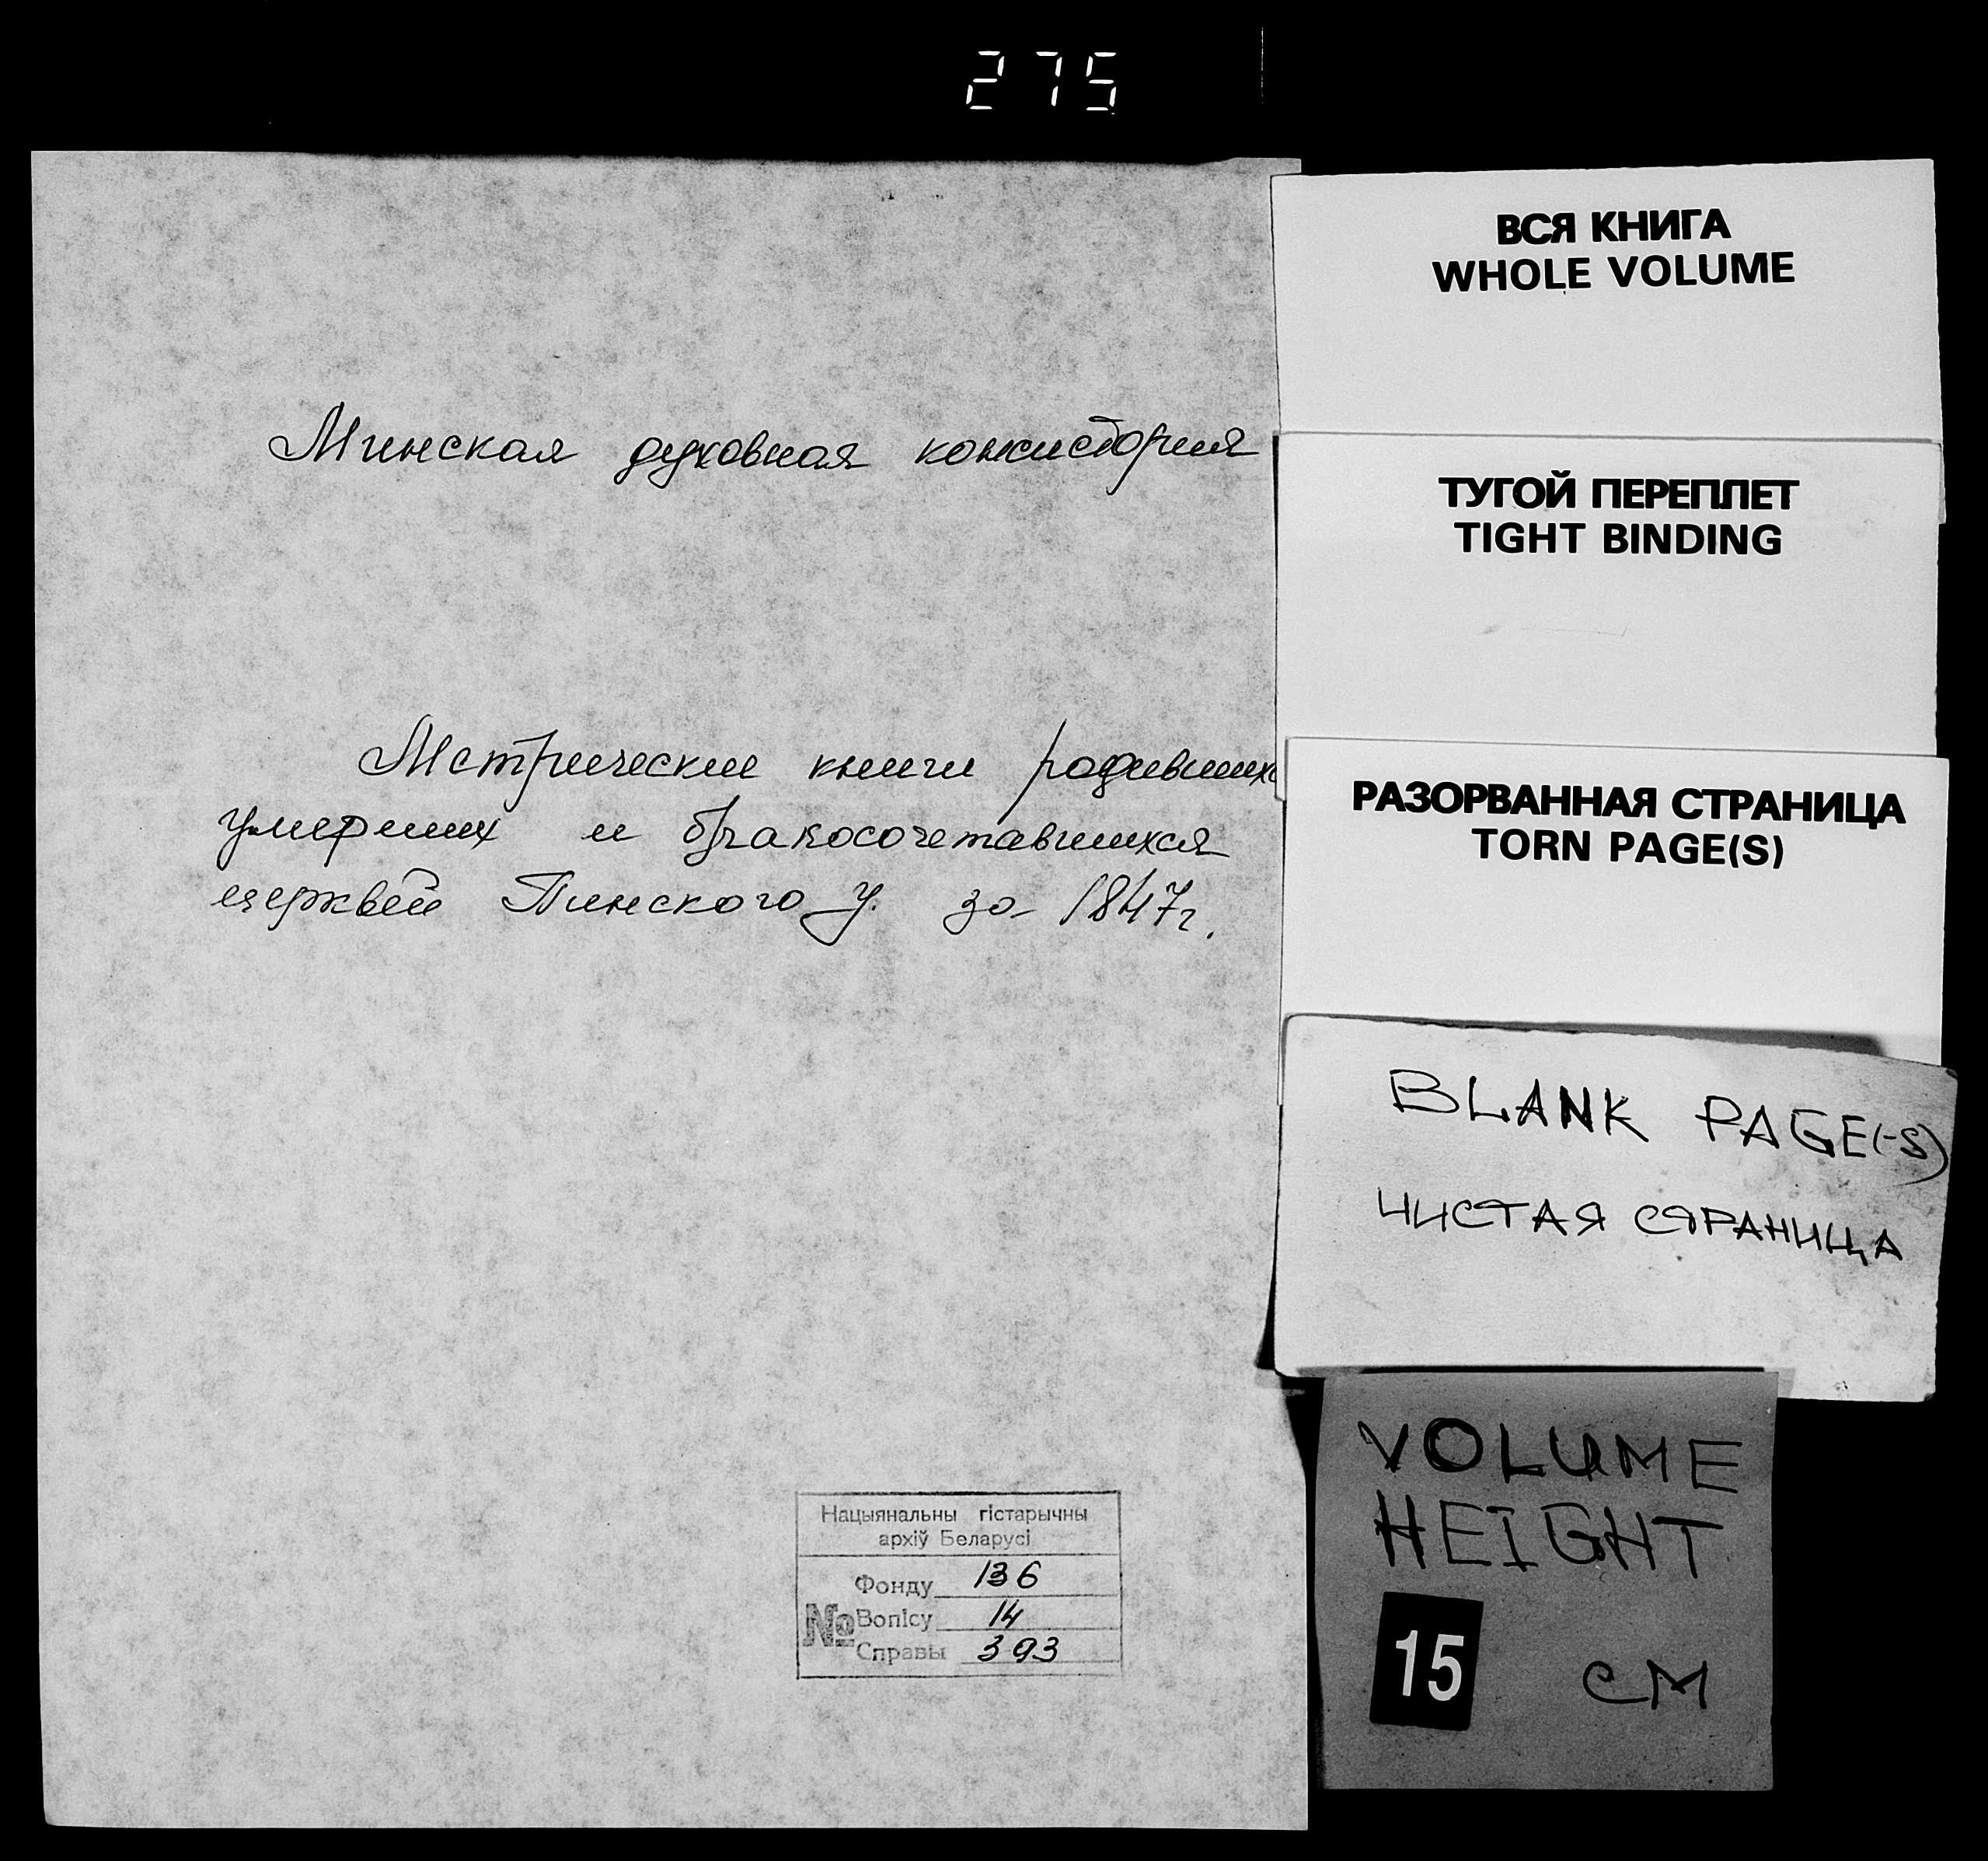 275
Минская духовная консистория
Метрические книги родившихс
умерших и бракосочетавшихся
церквей Пинского у. за 1847г.
Нацыянальны гістарычны
архіў Беларусі
Фонду 136
№ Вопісу 14
Справы 393
ВСЯ КНИГА
WHOLE VOLUME
ТУГОЙ ПЕРЕПЛЕТ
TIGHT BINDING
РАЗОРВАННАЯ СТРАНИЦА
TORN PAGE(S)
BLANK PAGE(-S)
ЧИСТАЯ СТРАНИЦА
VOLUME
HEIGHT
15 CM